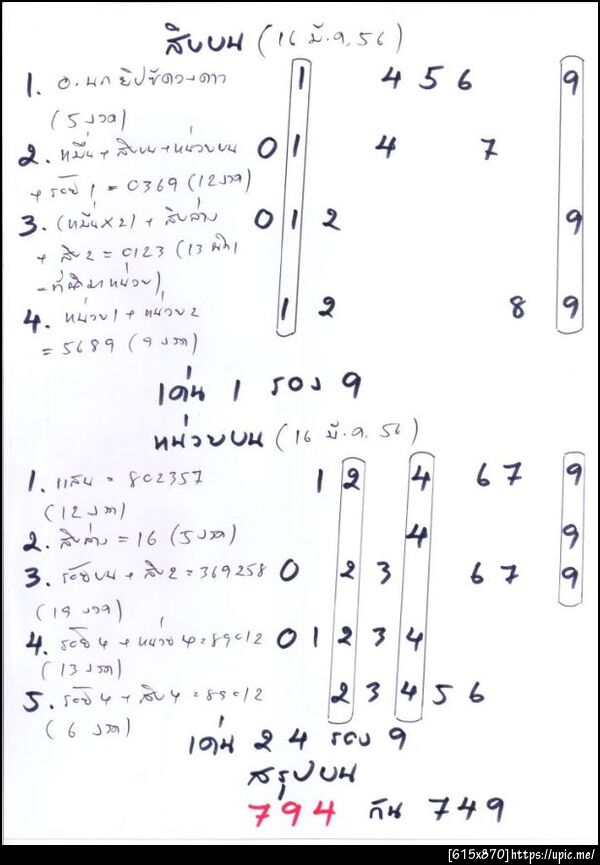 สิบบน (16 มี.ค. 56)
1. อ.นก ยิปซีดวงดาว 1 4 5 6 9
(5 งวด)
2. หมื่น + สิบบน + หน่วยบน 0 1 4 7
+ ร้อย 1 = 0369 (12 งวด)
3. (หมื่น x 2) + สิบล่าง 0 1 2 9
+ สิบ 2 = 0123 (13
4. หน่วย 1 + หน่วย 2 1 2 8 9
= 5689 (9 งวด)
เด่น 1 รอง 9
หน่วยบน (16 มี.ค. 56)
1. แสน = 802357 1 2 4 6 7 9
(12 งวด)
2. สิบล่าง = 16 (5 งวด) 4 9
3. ร้อยบน + สิบ 2 = 369258 0 2 3 6 7 9
(19 งวด)
4. ร้อย 4 + หน่วย 4 = 89012 0 1 2 3 4
(13 งวด)
5. ร้อย 4 + สิบ 4 = 89012 2 3 4 5 6
(6 งวด)
เด่น 2 4 รอง 9
สรุปบน
794 กัน 749
[615x870]https://upic.me/